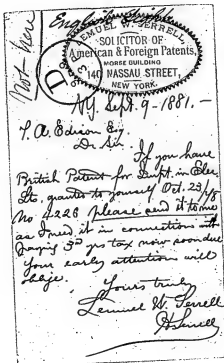 Not here
LEMUEL W. SERRELL
SOLICITOR OF
American & Foreign Patents,
MORSE BUILDING
140 NASSAU STREET,
NEW YORK.
N.Y. Sept. 9 - 1881. -
T. A. Edison Esq.
Dr Sir.
If you have
British Patent for Impt. in Elec.
Lts, granted to yourself Oct. 23/78
No 4226 please send it to me
as I need it in connection with
paying 3d yrs tax now soon due
Your early attention will
oblige.
Yours truly
Lemuel W. Serrell